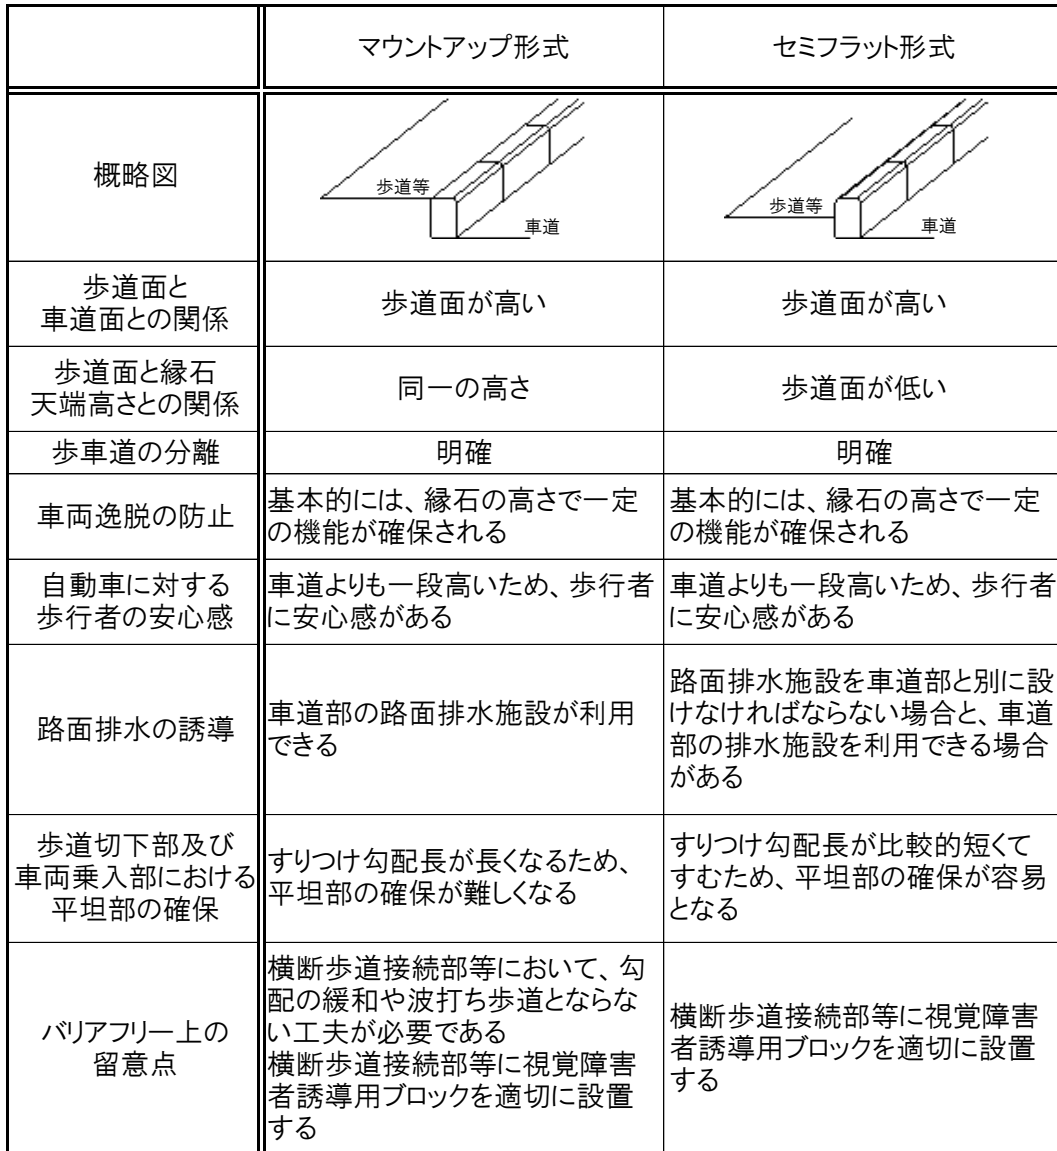 マウントアップ形式
セミフラット形式
概略図
歩道等
車道
歩道等
車道
歩道面と
車道面との関係
歩道面が高い
歩道面が高い
歩道面と縁石
天端高さとの関係
同一の高さ
歩道面が低い
歩車道の分離
明確
明確
車両逸脱の防止
基本的には、縁石の高さで一定
の機能が確保される
基本的には、縁石の高さで一定
の機能が確保される
自動車に対する
歩行者の安心感
車道よりも一段高いため、歩行者
に安心感がある
車道よりも一段高いため、歩行者
に安心感がある
路面排水の誘導
車道部の路面排水施設が利用
できる
路面排水施設を車道部と別に設
けなければならない場合と、車道
部の排水施設を利用できる場合
がある
歩道切下部及び
車両乗入部における
平坦部の確保
すりつけ勾配長が長くなるため、
平坦部の確保が難しくなる
すりつけ勾配長が比較的短くて
すむため、平坦部の確保が容易
となる
バリアフリー上の
留意点
横断歩道接続部等において、勾
配の緩和や波打ち歩道とならな
い工夫が必要である
横断歩道接続部等に視覚障害
者誘導用ブロックを適切に設置
する
横断歩道接続部等に視覚障害
者誘導用ブロックを適切に設置
する